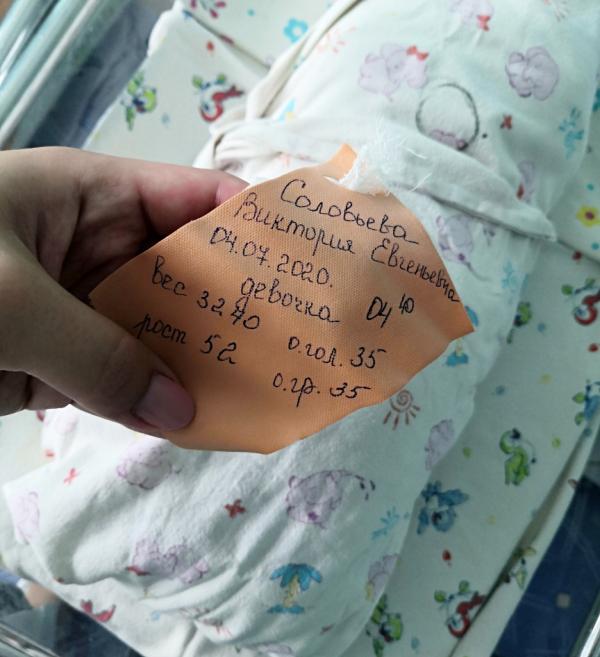 Соловьева
Виктория Евгеньевна
04.07.2020.
девочка 04 40
Вес 3240 о.гол. 35
рост 52 о.гр. 35